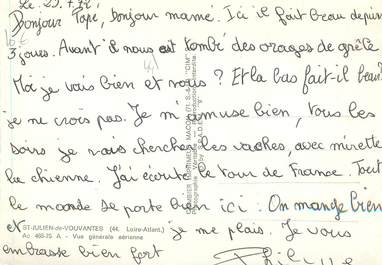 Le: 23.7.72
Bonjour Papé, bonjour mamé. Ici il fait beau depuis
3 jours. Avant il nous est tombé des orages de grêle
Moi je vais bien et vous ? Et la bas fait-il beau?
je ne crois pas. Je m'amuse bien, tous les
soirs je vais chercher les vaches, avec mirette
la chienne. J'ai écouté le tour de France. Tout
le monde se porte bien ici. On mange bien
et je me plais. Je vous
embrasse bien fort
ST-JULIEN-de-VOUVANTES (44. Loire-Atlant.)
A - Vue générale aérienne
COMBIER IMPRIMEUR MACON (71. S.-&-L.) "CIM"